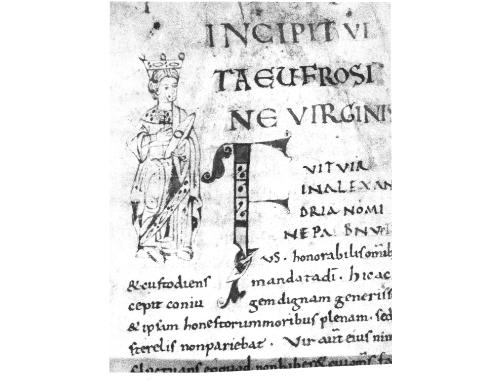 INCIPIT VI
TAEUFROSI
NE VIRGINIS
FVITVIR
INALEXAN
DRIA NOMI
NE PA BNVTI
US. honorabilis omib
& custodiens mandatadi. hic ac
cepit coniu gem dignam generis
& ipsam honestorum moribus plenam. sed
sterelis nonpariebat. Vir aut eius nim